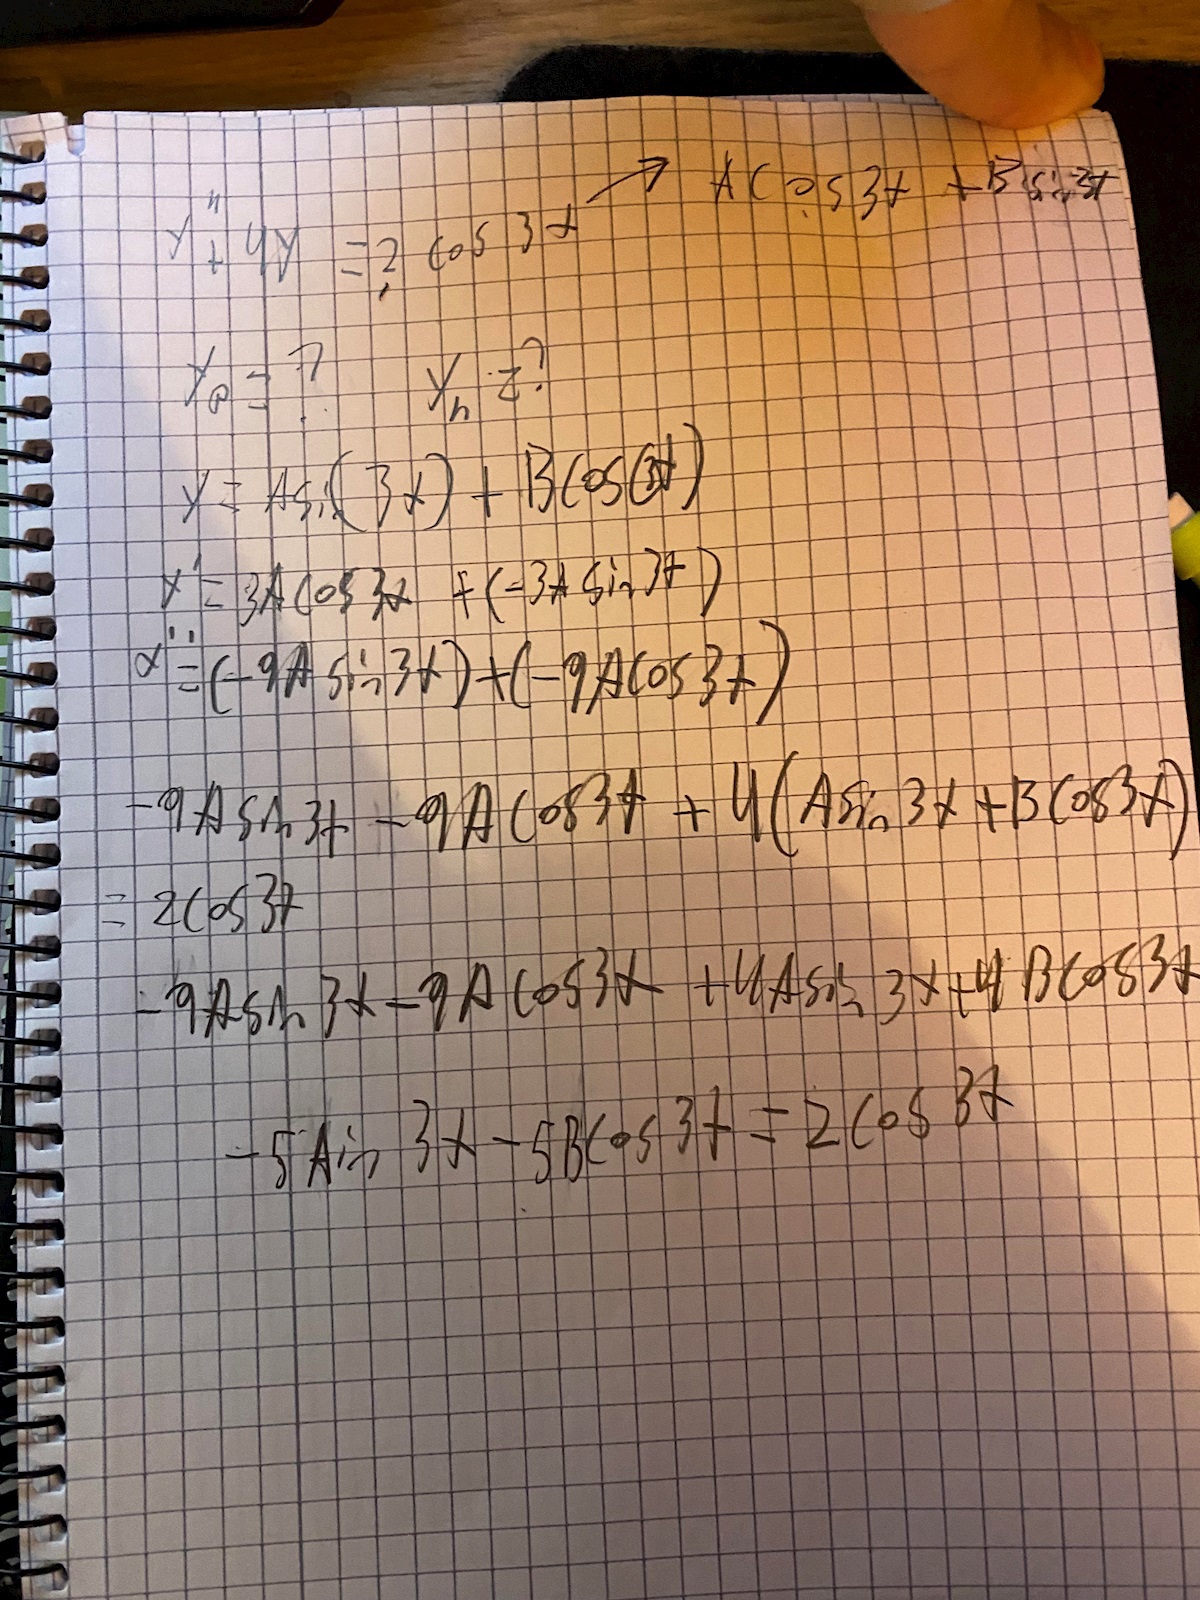 y'' + 4y = 2 cos 3x → A cos 3x + B sin 3x
y₀ = ? yₕ = ?
y = A sin(3x) + B cos(3x)
y' = 3A cos 3x + (-3A sin 3x)
y'' = (-9A sin 3x) + (-9A cos 3x)
-9A sin 3x - 9A cos 3x + 4(A sin 3x + B cos 3x)
= 2 cos 3x
-9A sin 3x - 9A cos 3x + 4A sin 3x + 4B cos 3x
-5 Ain 3x - 5B cos 3x = 2 cos 3x